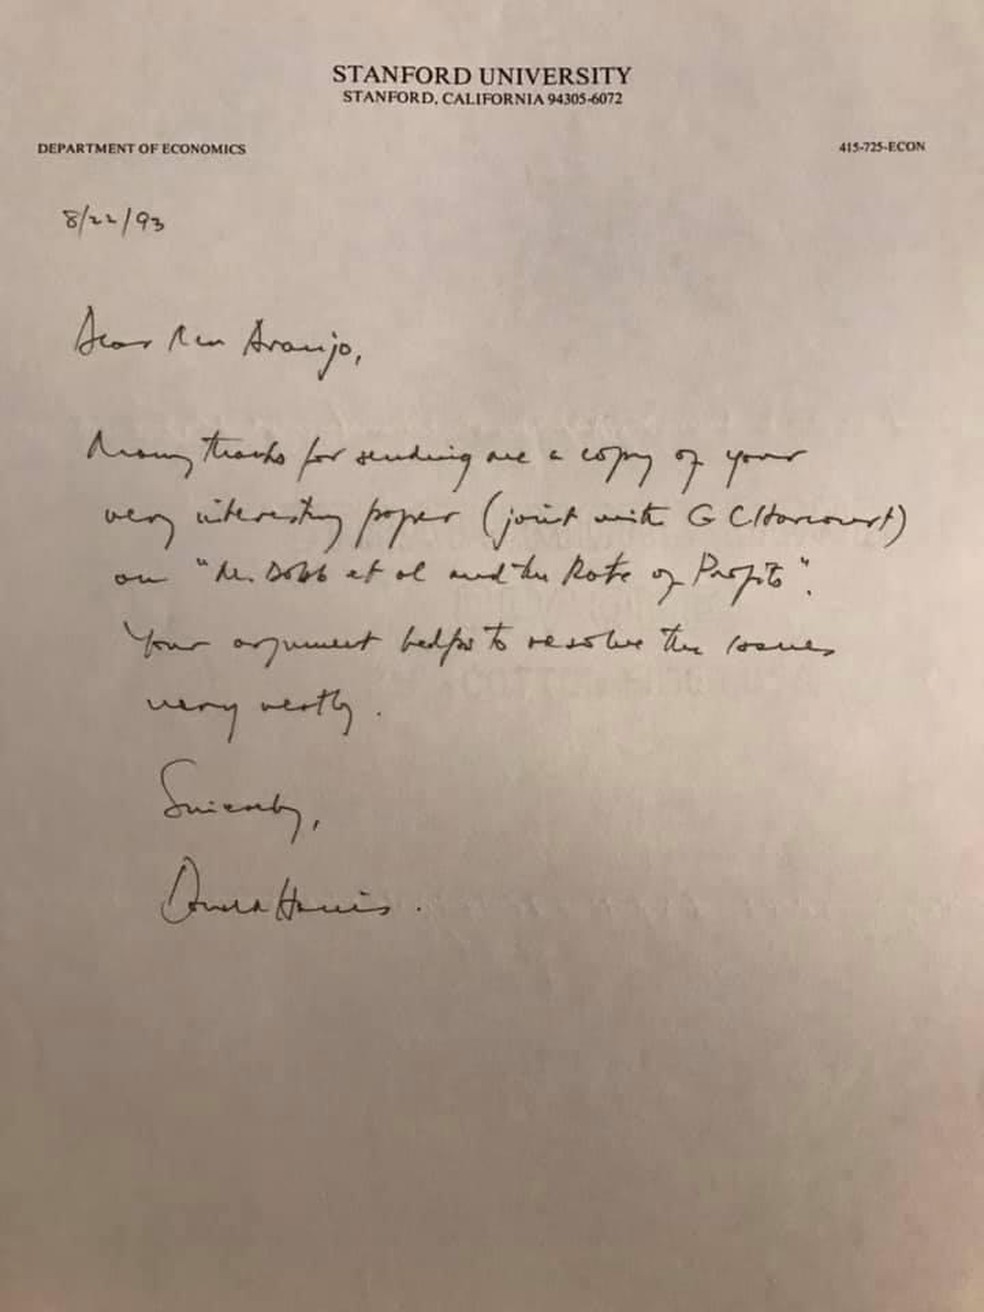 STANFORD UNIVERSITY
STANFORD, CALIFORNIA 94305-6072
DEPARTMENT OF ECONOMICS
415-725-ECON
8/22/93
Dear Araujo,
Many thanks for sending me a copy of your
very interesting paper (joint with G C Harcourt)
on "M. Dobb et al and the Rate of Profits".
Your argument helps to resolve the issues
very neatly.
Sincerely,
Donald Harris.